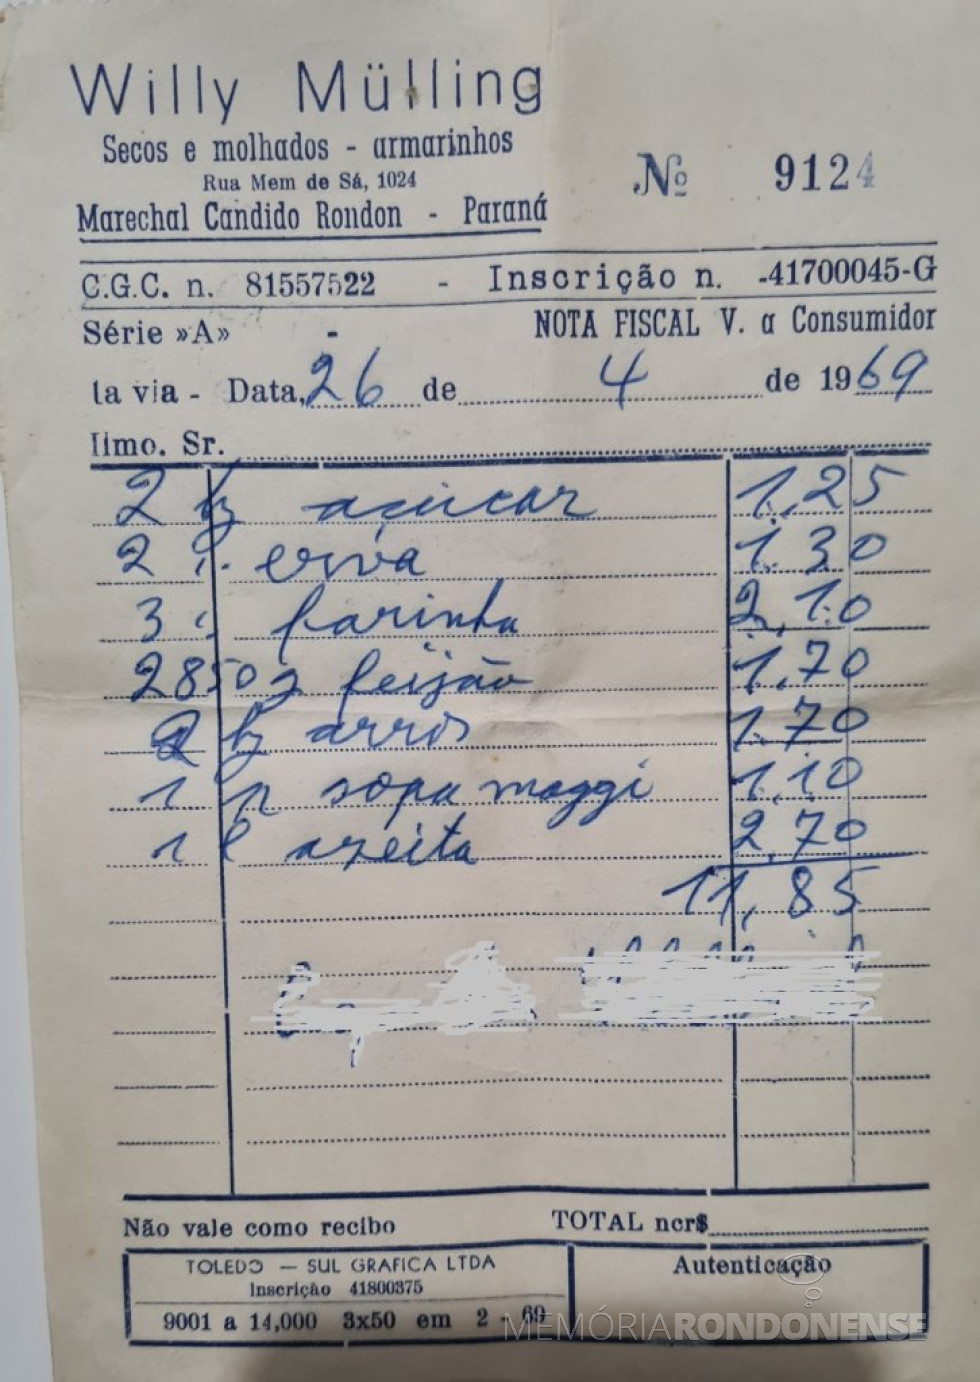 Willy Mülling
Secos e molhados - armarinhos
Rua Mem de Sá, 1024
Marechal Candido Rondon - Paraná
Nº 9124
C.G.C. n. 81557522 - Inscrição n. -41700045-G
Série »A» - NOTA FISCAL V. a Consumidor
1a via - Data, 26 de 4 de 1969
Ilmo. Sr.
2 k açúcar 1,25
2 erva 1.30
3 farinha 2,10
2850 g feijão 1,70
2 k arros 1.70
1 p sopa maggi 1,10
1 l azeita 2,70
11,85
Não vale como recibo TOTAL ncr$
TOLEDO — SUL GRAFICA LTDA
Inscrição 41800375
9001 a 14,000 3x50 em 2 - 69
Autenticação
MEMÓRIARONDONENSE